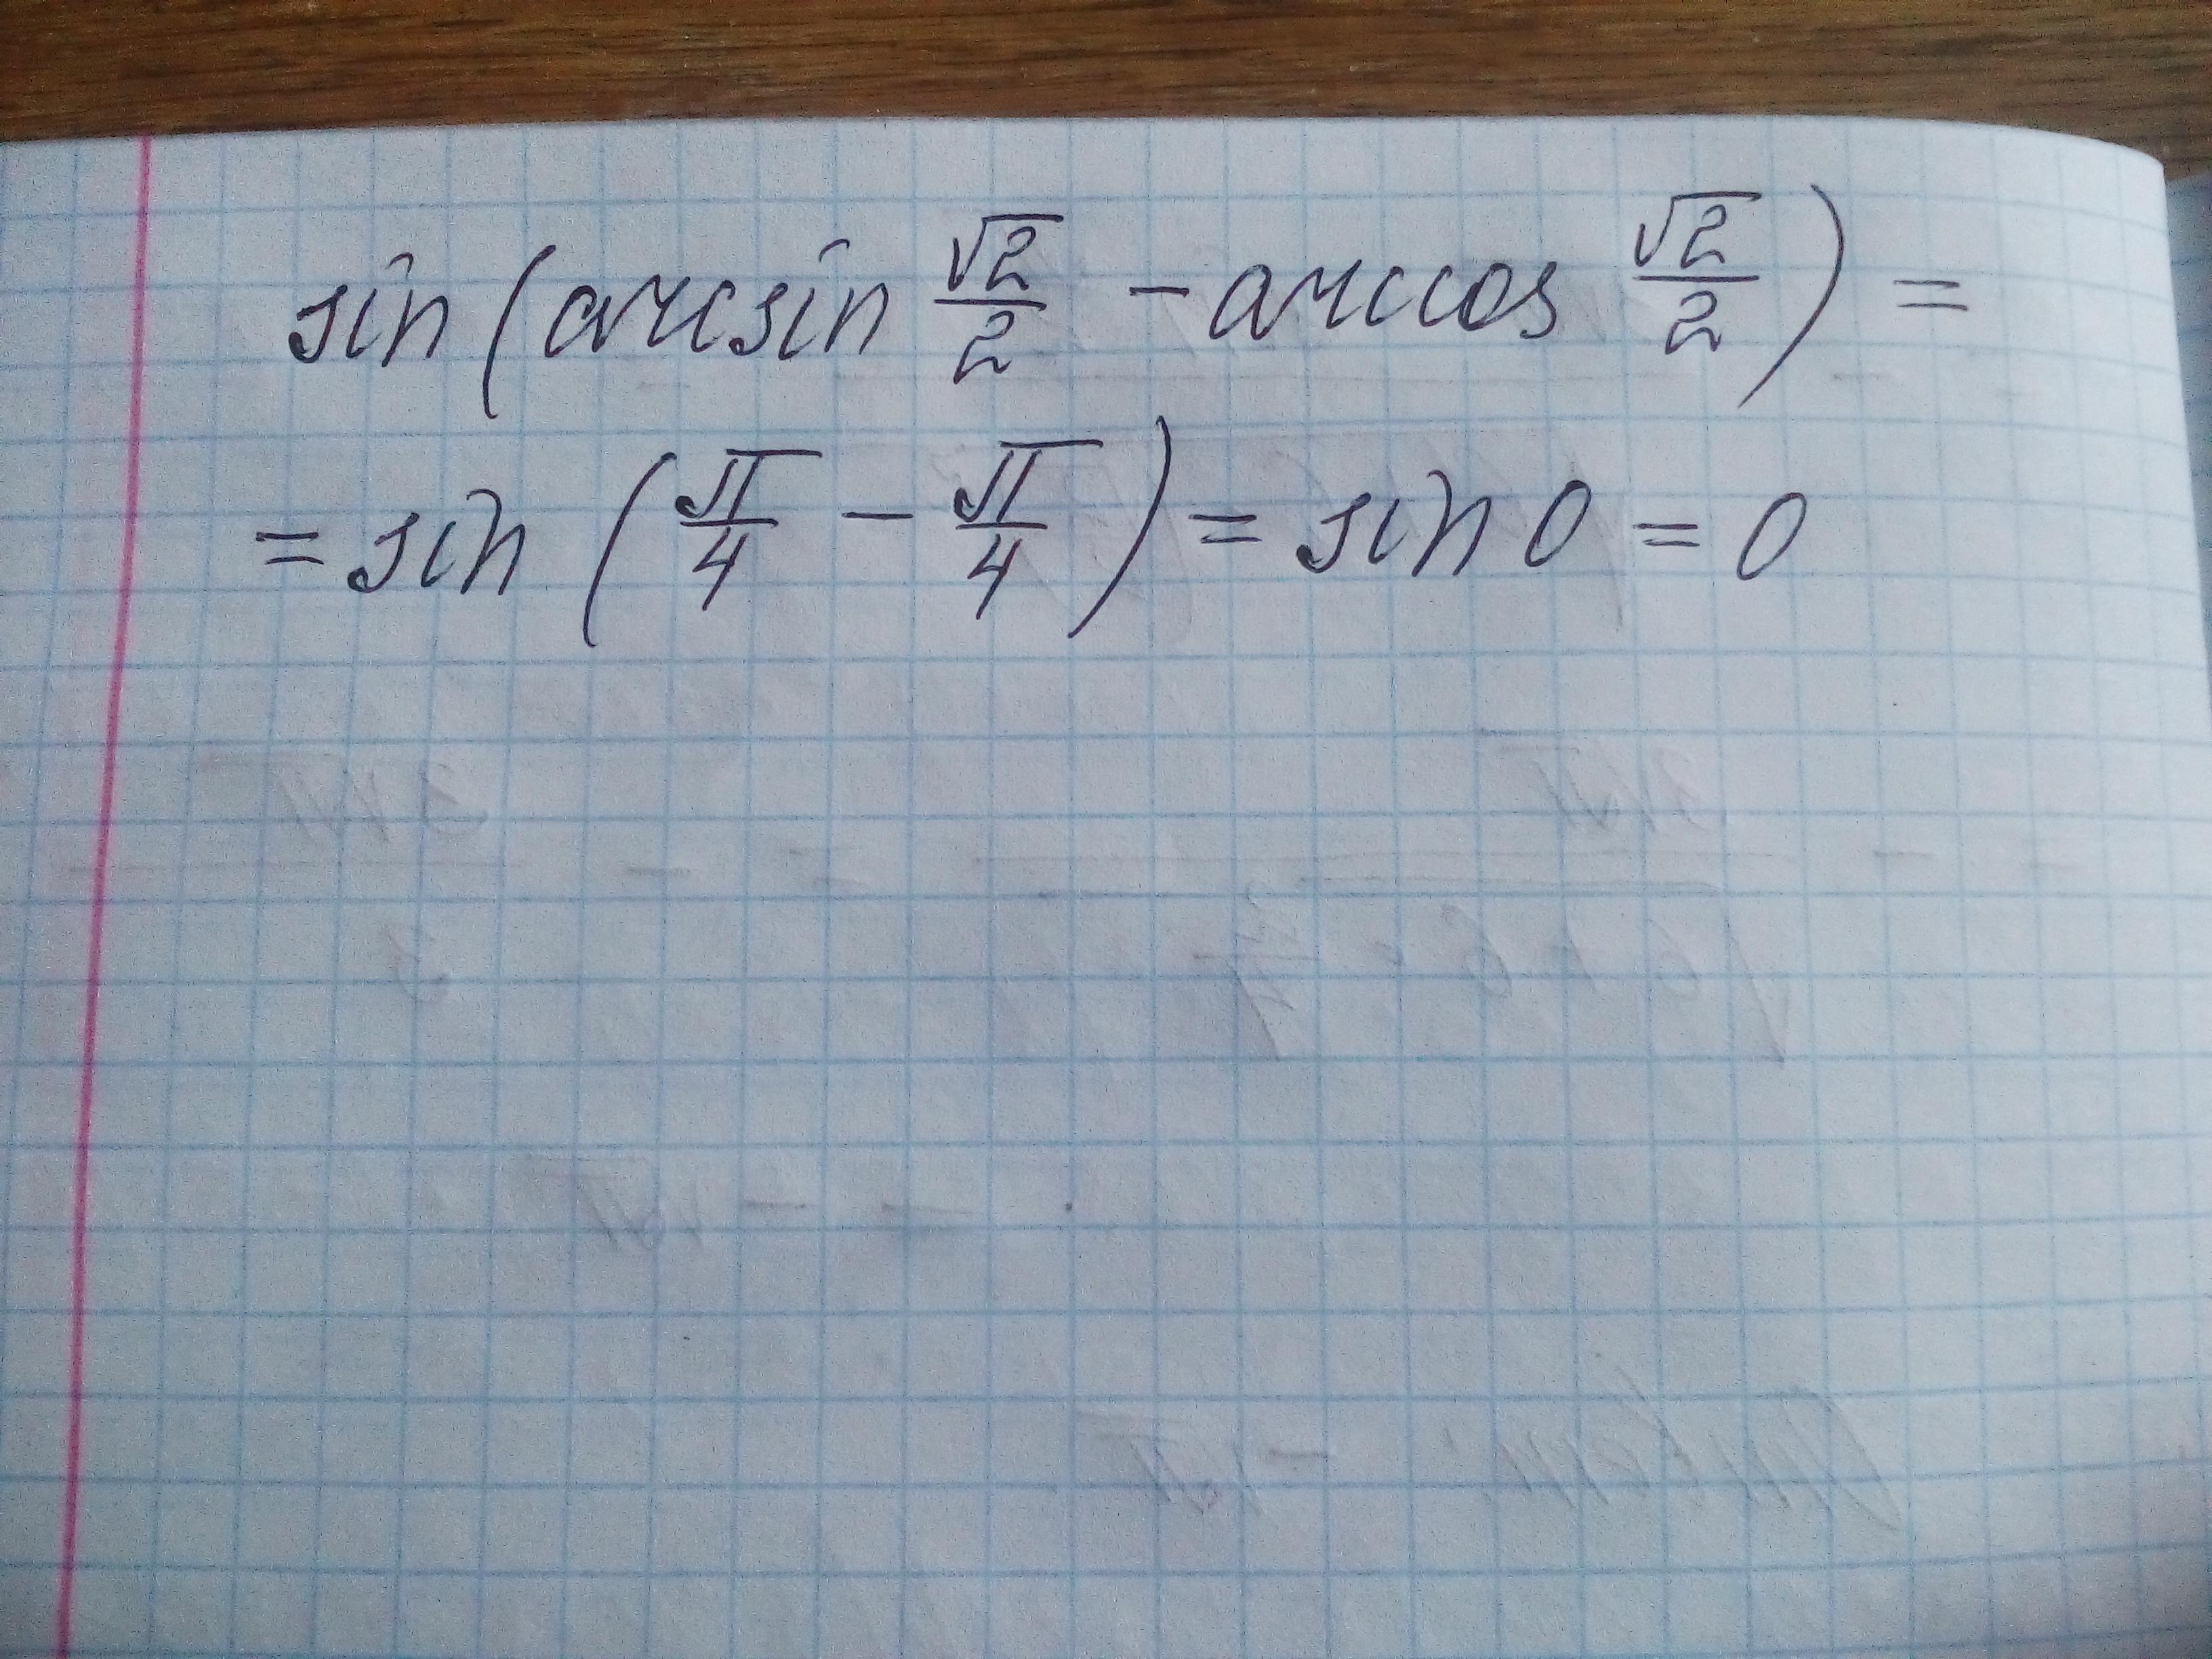 sin(arcsin √2/2 - arccos √2/2) =
= sin(π/4 - π/4) = sin 0 = 0